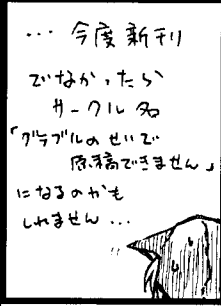 … 今度新刊
でなかったら
サークル名
「グラブルのせいで
原稿できません」
になるのかも
しれません…
!!